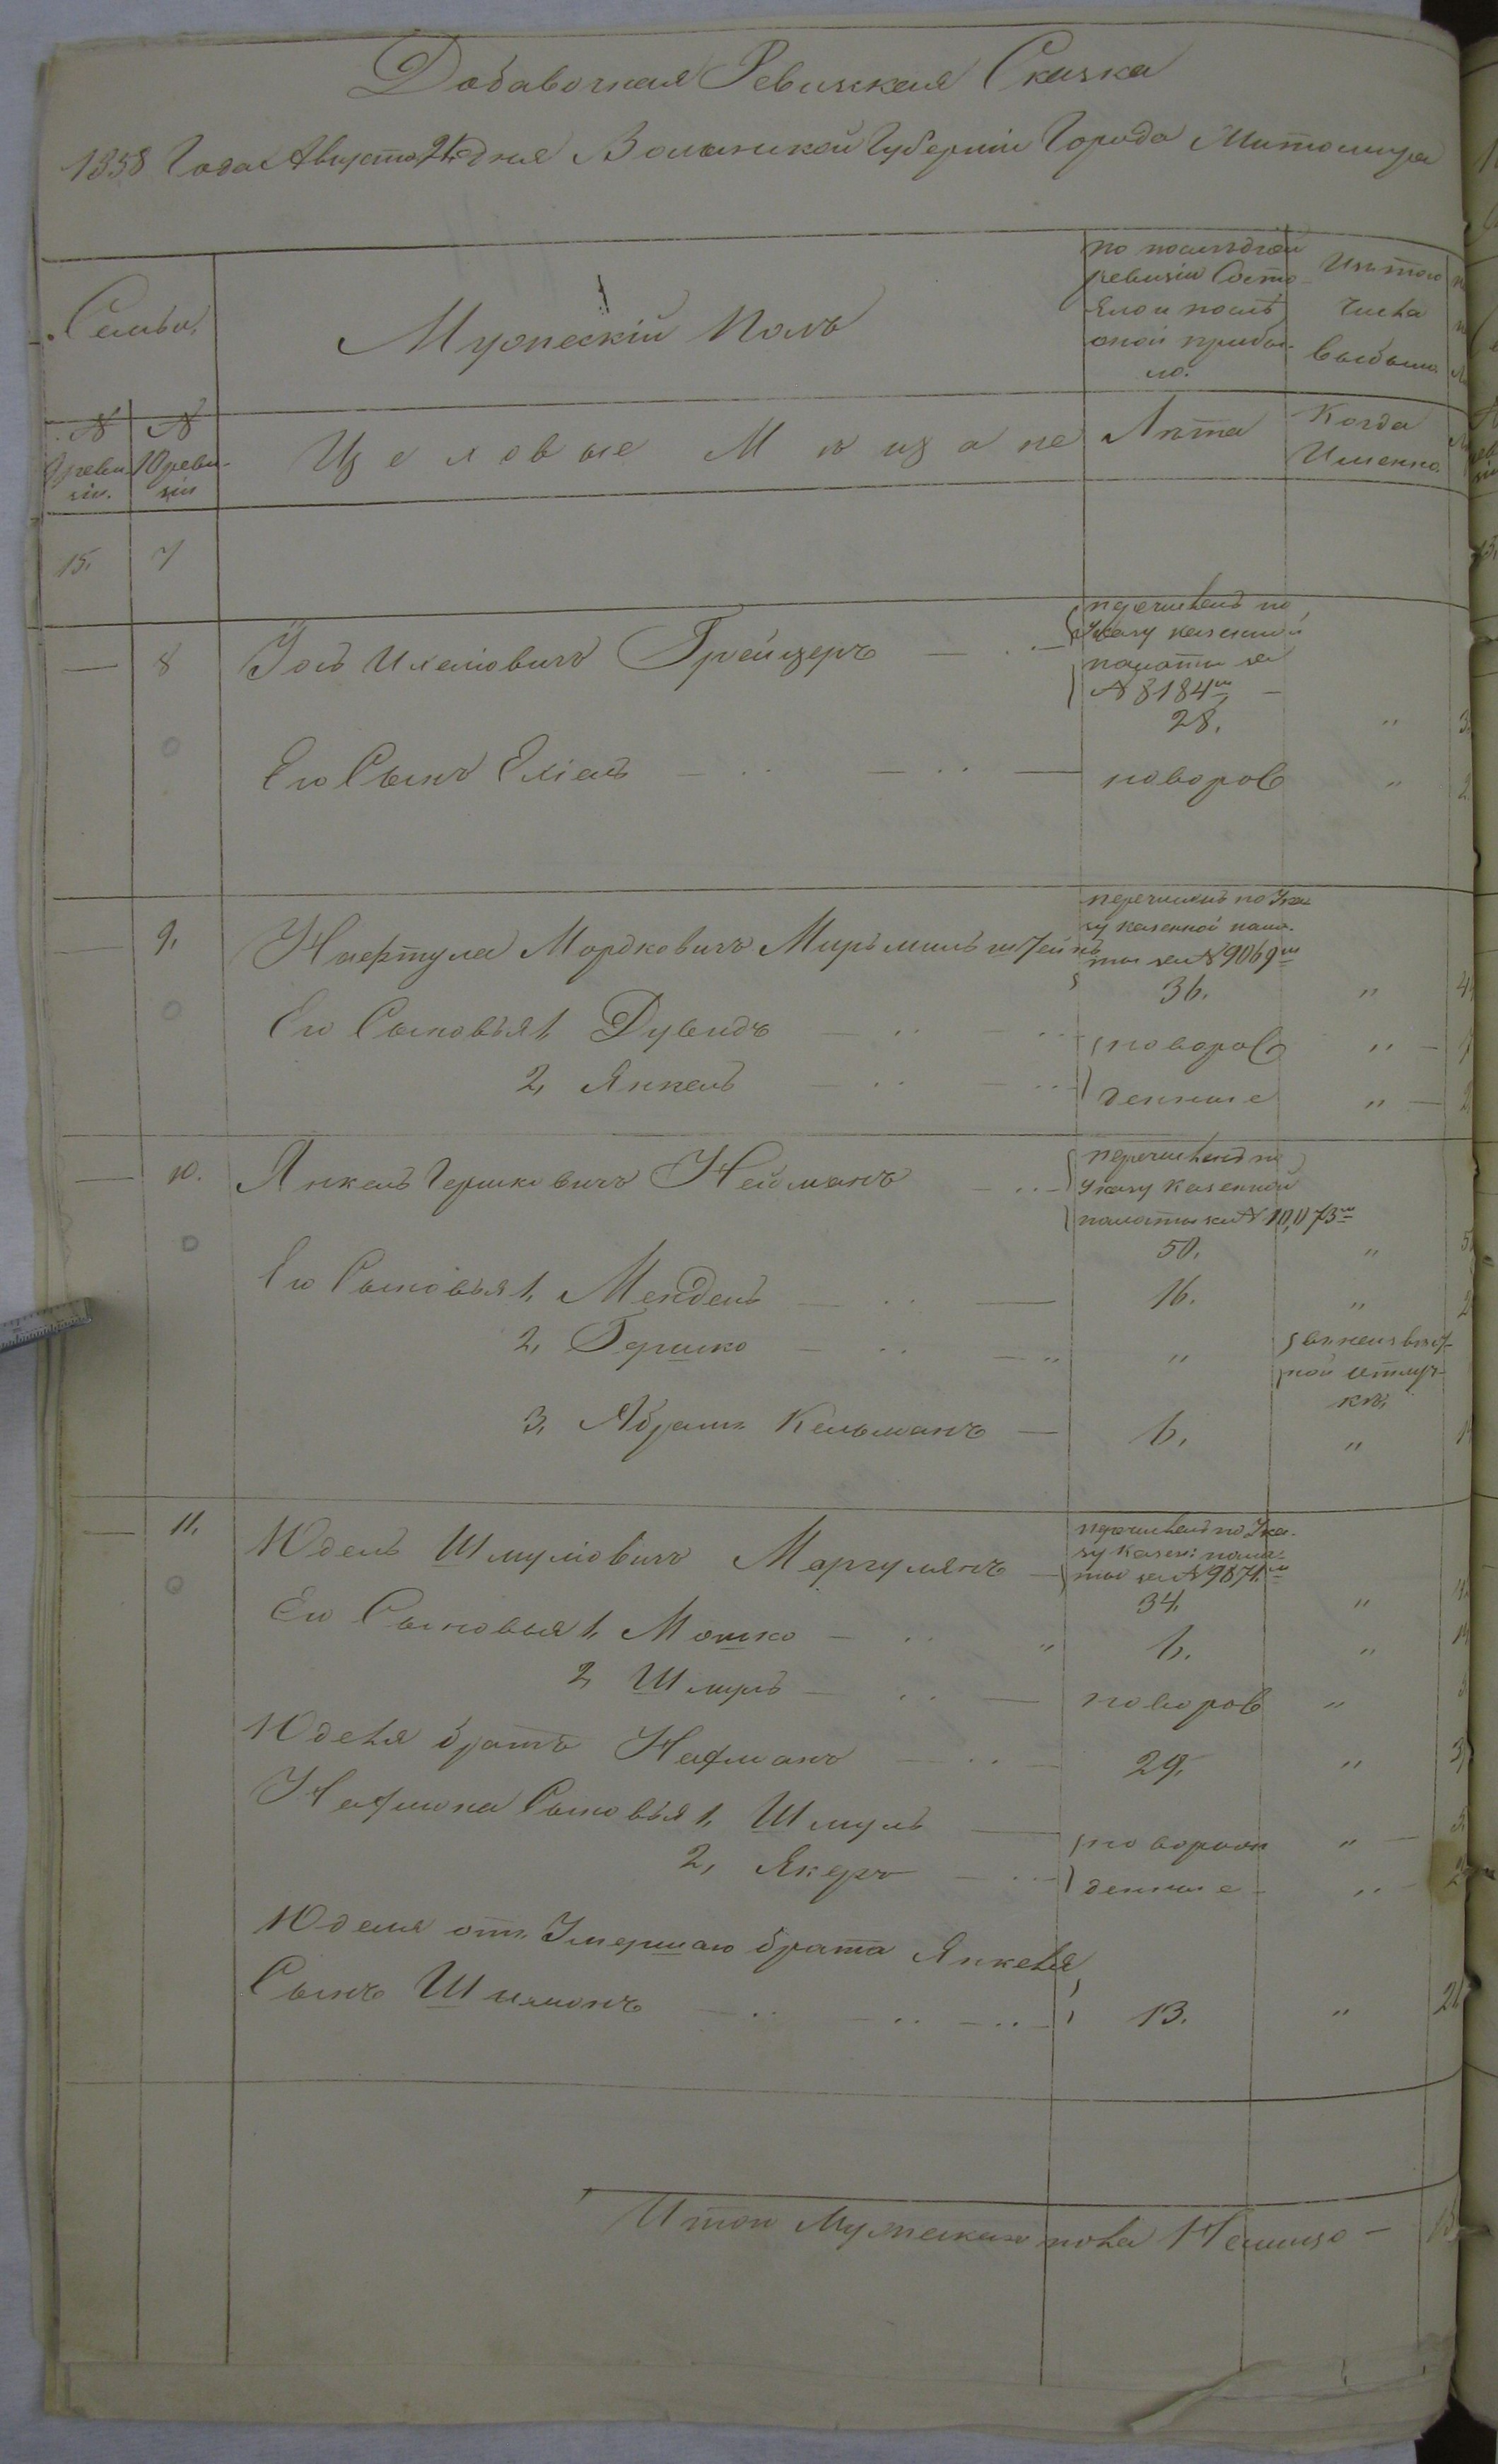 Добавочная Ревизская Сказка
1858 Года Августа 21 дня Волынской Губерніи Города Житомира
Семьи.
Мужескій Полъ
по послѣдней ревизіи Состояло и послѣ оной прибыло.
Изъ того числа выбыло
№ 9 ревизіи.
№ 10 ревизіи
Цеховые Мѣщане
Лѣта
Когда Именно.
15. 7
— 8 Іось Ицковичъ Грейцеръ — перечисленъ по
Указу казенной
палаты за
№ 8184мъ —
28. „
Его Сынъ Еліашъ — новорож „
— 9. Нафтула Мордковичъ Мирьмильштейнъ
перечисленъ по Ука-
зу казенной пала-
ты за № 9069мъ
36. „
Его Сыновья 1, Дувидъ — новорож „ —
2, Янкель — денные „ —
— 10. Янкель Гершковичъ Нейманъ — перечисленъ по
Указу Казенной
палаты за № 10,073мъ
50. „
Его Сыновья 1, Мендель — 16. „
2, Гершко — „ въ неизвѣст-
ной отлуч-
кѣ,
3, Абрамъ Кельманъ — 6. „
— 11. Юдель Шмуловичъ Маргулянъ — перечисленъ по Ука-
зу казен: пала-
ты за № 9871мъ
34. „
Его Сыновья 1, Мошко — „ 6. „
2, Шмуль — новорож „
Юделя братъ Нахманъ — 29. „
Нахмана Сыновья 1, Шмуль — новорож „ —
2, Якеръ — денные — „ —
Юделя отъ Умершаго брата Янкеля
Сынъ Шимонъ — 13. „
Итого Мужескаго пола Налицо —